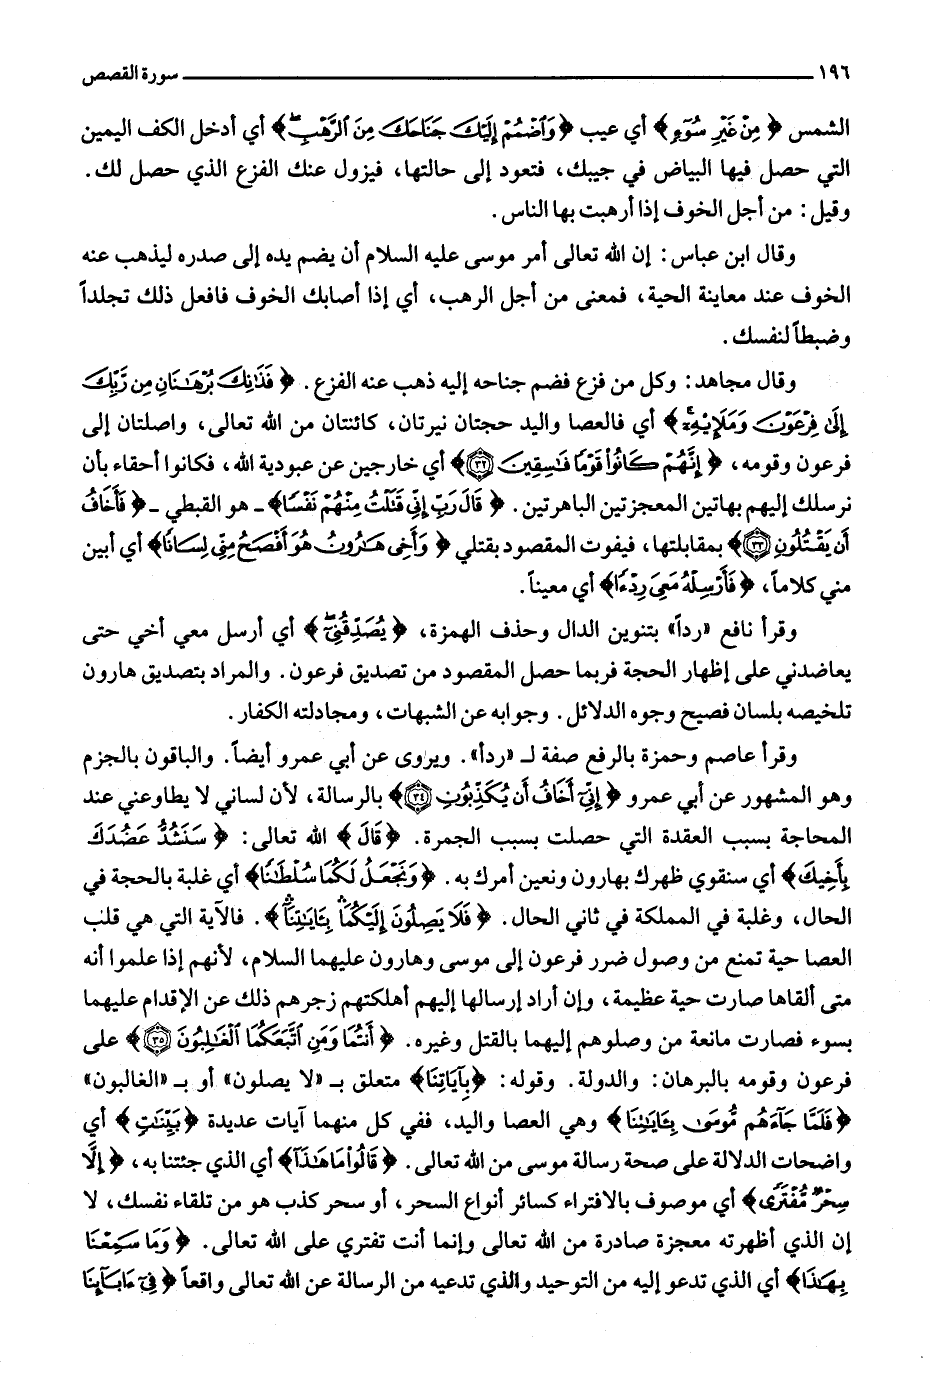 ١٩٦ سورة القصص
الشمس ﴿ مِنْ غَيْرِ سُوٓءٍ ﴾ أي عيب ﴿ وَٱضْمُمْ إِلَيْكَ جَنَاحَكَ مِنَ ٱلرَّهْبِۖ ﴾ أي أدخل الكف اليمين
التي حصل فيها البياض في جيبك، فتعود إلى حالتها، فيزول عنك الفزع الذي حصل لك.
وقيل: من أجل الخوف إذا أرهبت بها الناس.
وقال ابن عباس: إن الله تعالى أمر موسى عليه السلام أن يضم يده إلى صدره ليذهب عنه
الخوف عند معاينة الحية، فمعنى من أجل الرهب، أي إذا أصابك الخوف فافعل ذلك تجلداً
وضبطاً لنفسك.
وقال مجاهد: وكل من فزع فضم جناحه إليه ذهب عنه الفزع. ﴿ فَذَٰنِكَ بُرْهَٰنَانِ مِن رَّبِّكَ
إِلَىٰ فِرْعَوْنَ وَمَلَإِي۟هِۦٓ ﴾ أي فالعصا واليد حجتان نيرتان، كائنتان من الله تعالى، واصلتان إلى
فرعون وقومه، ﴿ إِنَّهُمْ كَانُوا۟ قَوْمًا فَٰسِقِينَ ٣٢﴾ أي خارجين عن عبودية الله، فكانوا أحقاء بأن
نرسلك إليهم بهاتين المعجزتين الباهرتين. ﴿ قَالَ رَبِّ إِنِّى قَتَلْتُ مِنْهُمْ نَفْسًا﴾ ـ هو القبطي ـ ﴿ فَأَخَافُ
أَن يَقْتُلُونِ ٣٣﴾ بمقابلتها، فيفوت المقصود بقتلي ﴿ وَأَخِى هَٰرُونُ هُوَ أَفْصَحُ مِنِّى لِسَانًا﴾ أي أبين
مني كلاماً، ﴿ فَأَرْسِلْهُ مَعِىَ رِدْءًا﴾ أي معيناً.
وقرأ نافع «رداً» بتنوين الدال وحذف الهمزة، ﴿ يُصَدِّقُنِىٓۖ ﴾ أي أرسل معي أخي حتى
يعاضدني على إظهار الحجة فربما حصل المقصود من تصديق فرعون. والمراد بتصديق هارون
تلخيصه بلسان فصيح وجوه الدلائل. وجوابه عن الشبهات، ومجادلته الكفار.
وقرأ عاصم وحمزة بالرفع صفة لـ «ردأ». ويروى عن أبي عمرو أيضاً. والباقون بالجزم
وهو المشهور عن أبي عمرو ﴿ إِنِّىٓ أَخَافُ أَن يُكَذِّبُونِ ٣٤﴾ بالرسالة، لأن لساني لا يطاوعني عند
المحاجة بسبب العقدة التي حصلت بسبب الجمرة. ﴿قَالَ﴾ الله تعالى: ﴿ سَنَشُدُّ عَضُدَكَ
بِأَخِيكَ﴾ أي سنقوي ظهرك بهارون ونعين أمرك به. ﴿وَنَجْعَلُ لَكُمَا سُلْطَٰنًا﴾ أي غلبة بالحجة في
الحال، وغلبة في المملكة في ثاني الحال. ﴿ فَلَا يَصِلُونَ إِلَيْكُمَاۚ بِـَٔايَٰتِنَآۚ ﴾. فالآية التي هي قلب
العصا حية تمنع من وصول ضرر فرعون إلى موسى وهارون عليهما السلام، لأنهم إذا علموا أنه
متى ألقاها صارت حية عظيمة، وإن أراد إرسالها إليهم أهلكتهم زجرهم ذلك عن الإقدام عليهما
بسوء فصارت مانعة من وصلوهم إليهما بالقتل وغيره. ﴿ أَنتُمَا وَمَنِ ٱتَّبَعَكُمَا ٱلْغَٰلِبُونَ ٣٥﴾ على
فرعون وقومه بالبرهان: والدولة. وقوله: ﴿بِآيَاتِنَا﴾ متعلق بـ «لا يصلون» أو بـ «الغالبون»
﴿فَلَمَّا جَآءَهُم مُّوسَىٰ بِـَٔايَٰتِنَا﴾ وهي العصا واليد، ففي كل منهما آيات عديدة ﴿بَيِّنَٰتٍ﴾ أي
واضحات الدلالة على صحة رسالة موسى من الله تعالى. ﴿قَالُوا۟ مَا هَٰذَآ﴾ أي الذي جئتنا به، ﴿ إِلَّا
سِحْرٌ مُّفْتَرًى﴾ أي موصوف بالافتراء كسائر أنواع السحر، أو سحر كذب هو من تلقاء نفسك، لا
إن الذي أظهرته معجزة صادرة من الله تعالى وإنما أنت تفتري على الله تعالى. ﴿ وَمَا سَمِعْنَا
بِهَٰذَا﴾ أي الذي تدعو إليه من التوحيد والذي تدعيه من الرسالة عن الله تعالى واقعاً ﴿ فِىٓ ءَابَآئِنَا